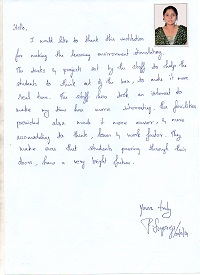 Hello,
I would like to thank this institution
for making the learning environment stimulating.
The tasks & projects set by the staff to help the
students to think out of the box, to make it more
real time. The staff have took an interest to
make my time here more interesting, the facilities
provided also made it more easier, & more
accomodating to think, learn & work faster. They
make sure that students passing through their
doors, have a very bright future.
Yours truly